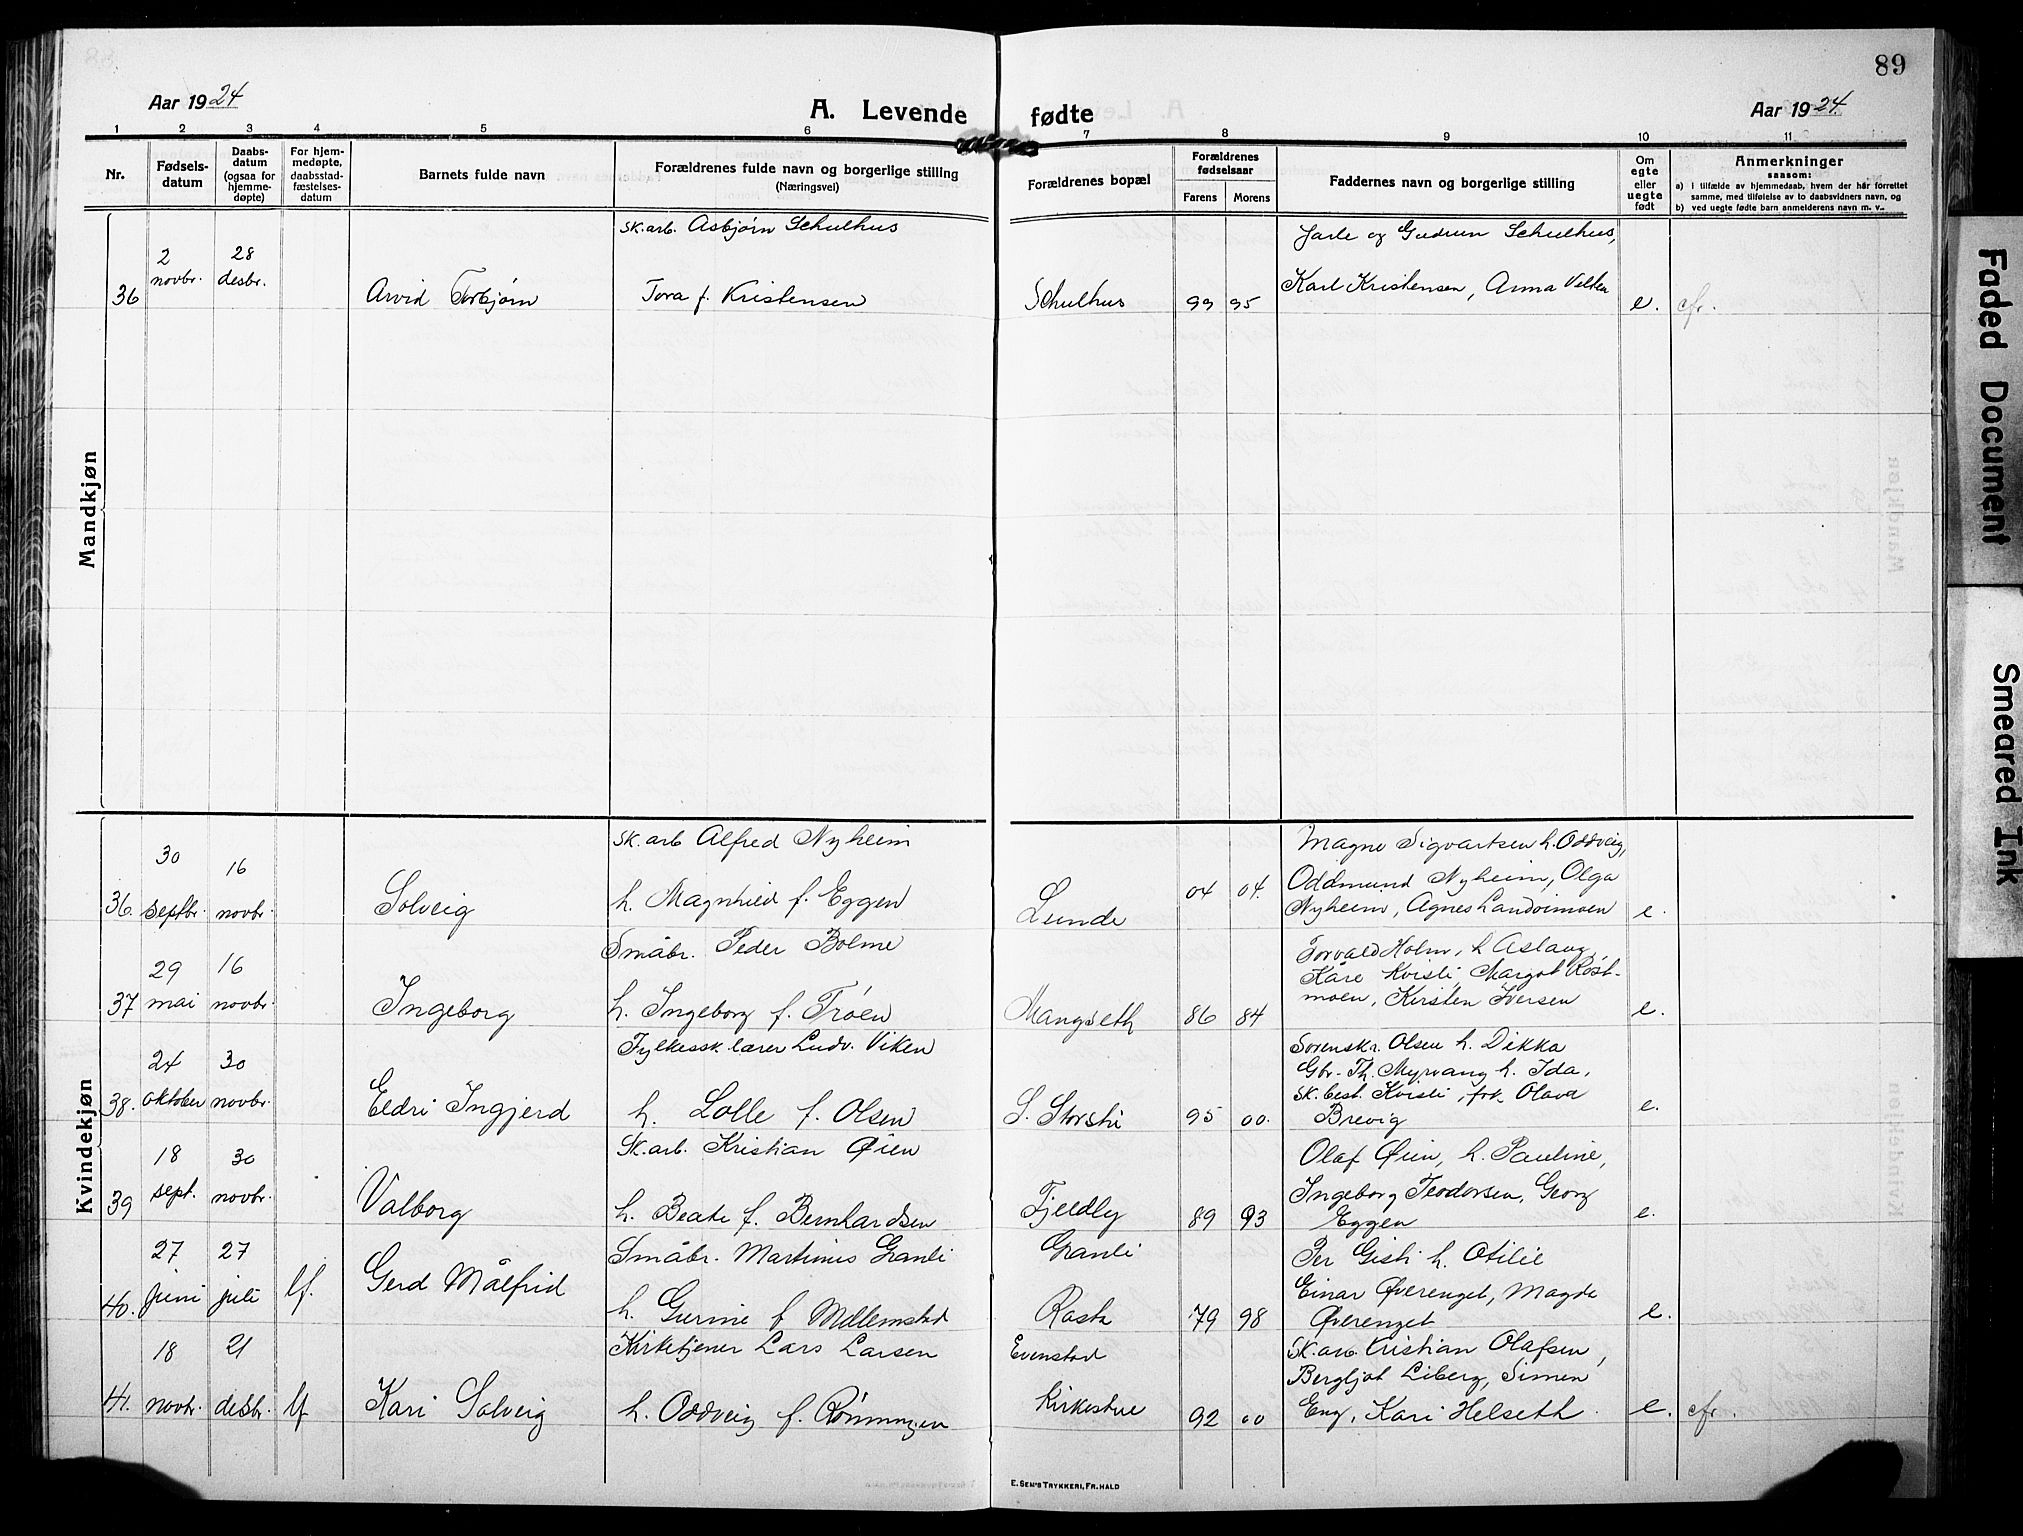 89
Aar 1924
A. Levende fødte
Aar 1924.
1 2 3 4 5 6 7 8 9 10 11
Nr.
Fødsels-
datum
Daabs-
datum
(ogsaa for
hjemme-
døpte)
For hjem-
medøpte,
daabsstad-
fæstelses-
datum
Barnets fulde navn
Forældrenes fulde navn og borgerlige stilling
(Næringsvei)
Forældrenes bopæl
Forældrenes
fødselsaar
Farens Morens
Faddernes navn og borgerlige stilling
Om
egte
eller
uegte
født
Anmerkninger
saasom:
a) i tilfælde av hjemmedaab, hvem der har forrettet
samme, med tilføielse av to daabsvidners navn, og
b) ved uegte fødte barn anmelderens navn m. v.
Mandkjøn
Sk.arb. Asbjørn Schulhus Jarle og Gudrun Schulhus,
2 28
novbr. desbr.
36 Arvid Torbjørn Tora f. Kristensen Schulhus 99 95 Karl Kristensen, Anna e. cfr.
Kvindekjøn
Sk.arb Alfred Nyheim Magne Sigvartsen h. Oddveig,
30 16
36. septbr. novbr. Solveig h. Magnhild f. Eggen Lunde 04 04. Oddmund Nyheim, Olga
Nyheim, Agnes Landsimoen e.
Småbr. Peder Bolme Torvald Holm, h Aslaug,
29 16 Kåre Kvisli, Margot Røst-
37 mai novbr. Ingeborg h. Ingeborg f. Trøen Mangseth 86 84 moen, Kirsten Iversen e.
Fylkessk.lærer Ludv. Viken Sorenskr. Olsen h. Dikka
24 30 Gbr. Th. Myrvang h. Ida,
38. oktober novbr. Eldri Ingjerd h. Lolle f. Olsen S. Storsti 95 00. Sk.best. Kvisli, frk. Olava
Brevig e.
Sk.arb. Kristian Øien Olaf Øien, h. Pauline,
18 30
39 sept. novbr. Valborg h. Beate f. Bernhardsen Fjeldly 89 93 Ingeborg Teodorsen, Georg
Eggen e.
27 27 Småbr. Martinius Granli Granli Per Gisti h. Otilie
40. juni juli lf. Gerd Målfrid h. Gurine f Mellemstad Rasta 79 98 Einar Øverenget, Magda
Øverenget e.
18 21 Kirketjener Lars Larsen Evenstad Sk.arb. Kristian Olafsen,
Bergljot Liberg, Simen
41. novbr. desbr. lf Kari Solveig h. Oddveig f. Rønningen Kirkestue 92 00 Eng, Kari Helseth. e. cfr.
E. SEM'S TRYKKERI, FR.HALD
Faded Document
Smeared Ink